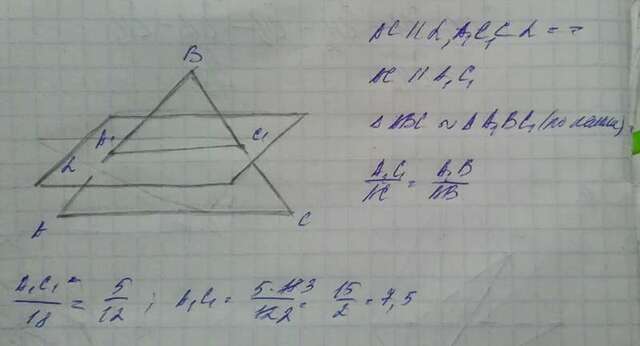 B
A₁
C₁
α
A
C
AC || α, A₁C₁ ⊂ α => 
AC || A₁C₁
Δ ABC ~ Δ A₁BC₁
A₁C₁/AC = A₁B/AB
A₁C₁/18 = 5/12 ; A₁C₁ = 5·18 3/12 2 = 15/2 = 7,5